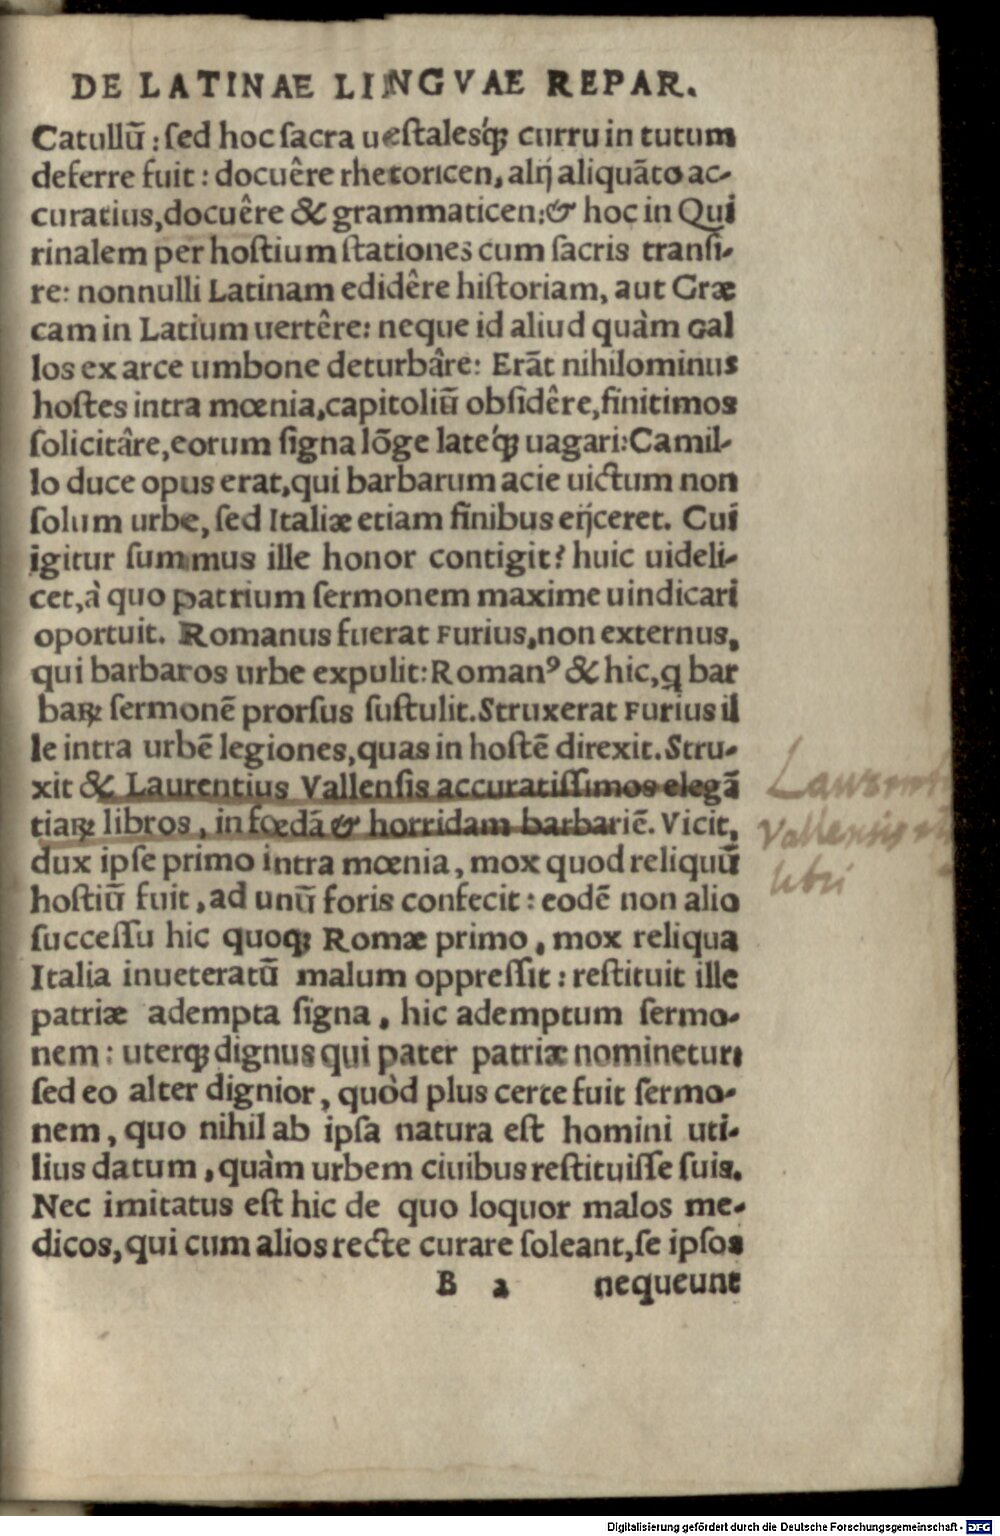 DE LATINAE LINGVAE REPAR.
Catullũ: sed hoc sacra uestalesq́ꝫ curru in tutum
deferre fuit: docuêre rhetoricen, alij aliquãto ac-
curatius, docuêre & grammaticen: & hoc in Qui
rinalem per hostium stationes cum sacris transi-
re: nonnulli Latinam edidêre historiam, aut Græ
cam in Latium uertêre: neque id aliud quàm Gal
los ex arce umbone deturbâre: Erãt nihilominus
hostes intra mœnia, capitoliũ obsidêre, finitimos
solicitâre, eorum signa lõge lateq́ꝫ uagari: Camil-
lo duce opus erat, qui barbarum acie uictum non
solum urbe, sed Italiæ etiam finibus eijceret. Cui
igitur summus ille honor contigit? huic uideli-
cet, à quo patrium sermonem maxime uindicari
oportuit. Romanus fuerat Furius, non externus,
qui barbaros urbe expulit: Romanꝰ & hic, q bar
baꝝ sermonẽ prorsus sustulit. Struxerat Furius il
le intra urbẽ legiones, quas in hostẽ direxit. Stru-
xit & Laurentius Vallensis accuratissimos elegã
tiaꝝ libros, in fœdã & horridam barbariẽ. Vicit,
dux ipse primo intra mœnia, mox quod reliquũ
hostiũ fuit, ad unũ foris confecit: eodẽ non alio
successu hic quoqꝫ Romæ primo, mox reliqua
Italia inueteratũ malum oppressit: restituit ille
patriæ adempta signa, hic ademptum sermo-
nem: uterqꝫ dignus qui pater patriæ nominetur:
sed eo alter dignior, quòd plus certe fuit sermo-
nem, quo nihil ab ipsa natura est homini uti-
lius datum, quàm urbem ciuibus restituisse suis.
Nec imitatus est hic de quo loquor malos me-
dicos, qui cum alios recte curare soleant, se ipsos
B 2 nequeunt
Vallensis
libri
Digitalisierung gefördert durch die Deutsche Forschungsgemeinschaft - DFG